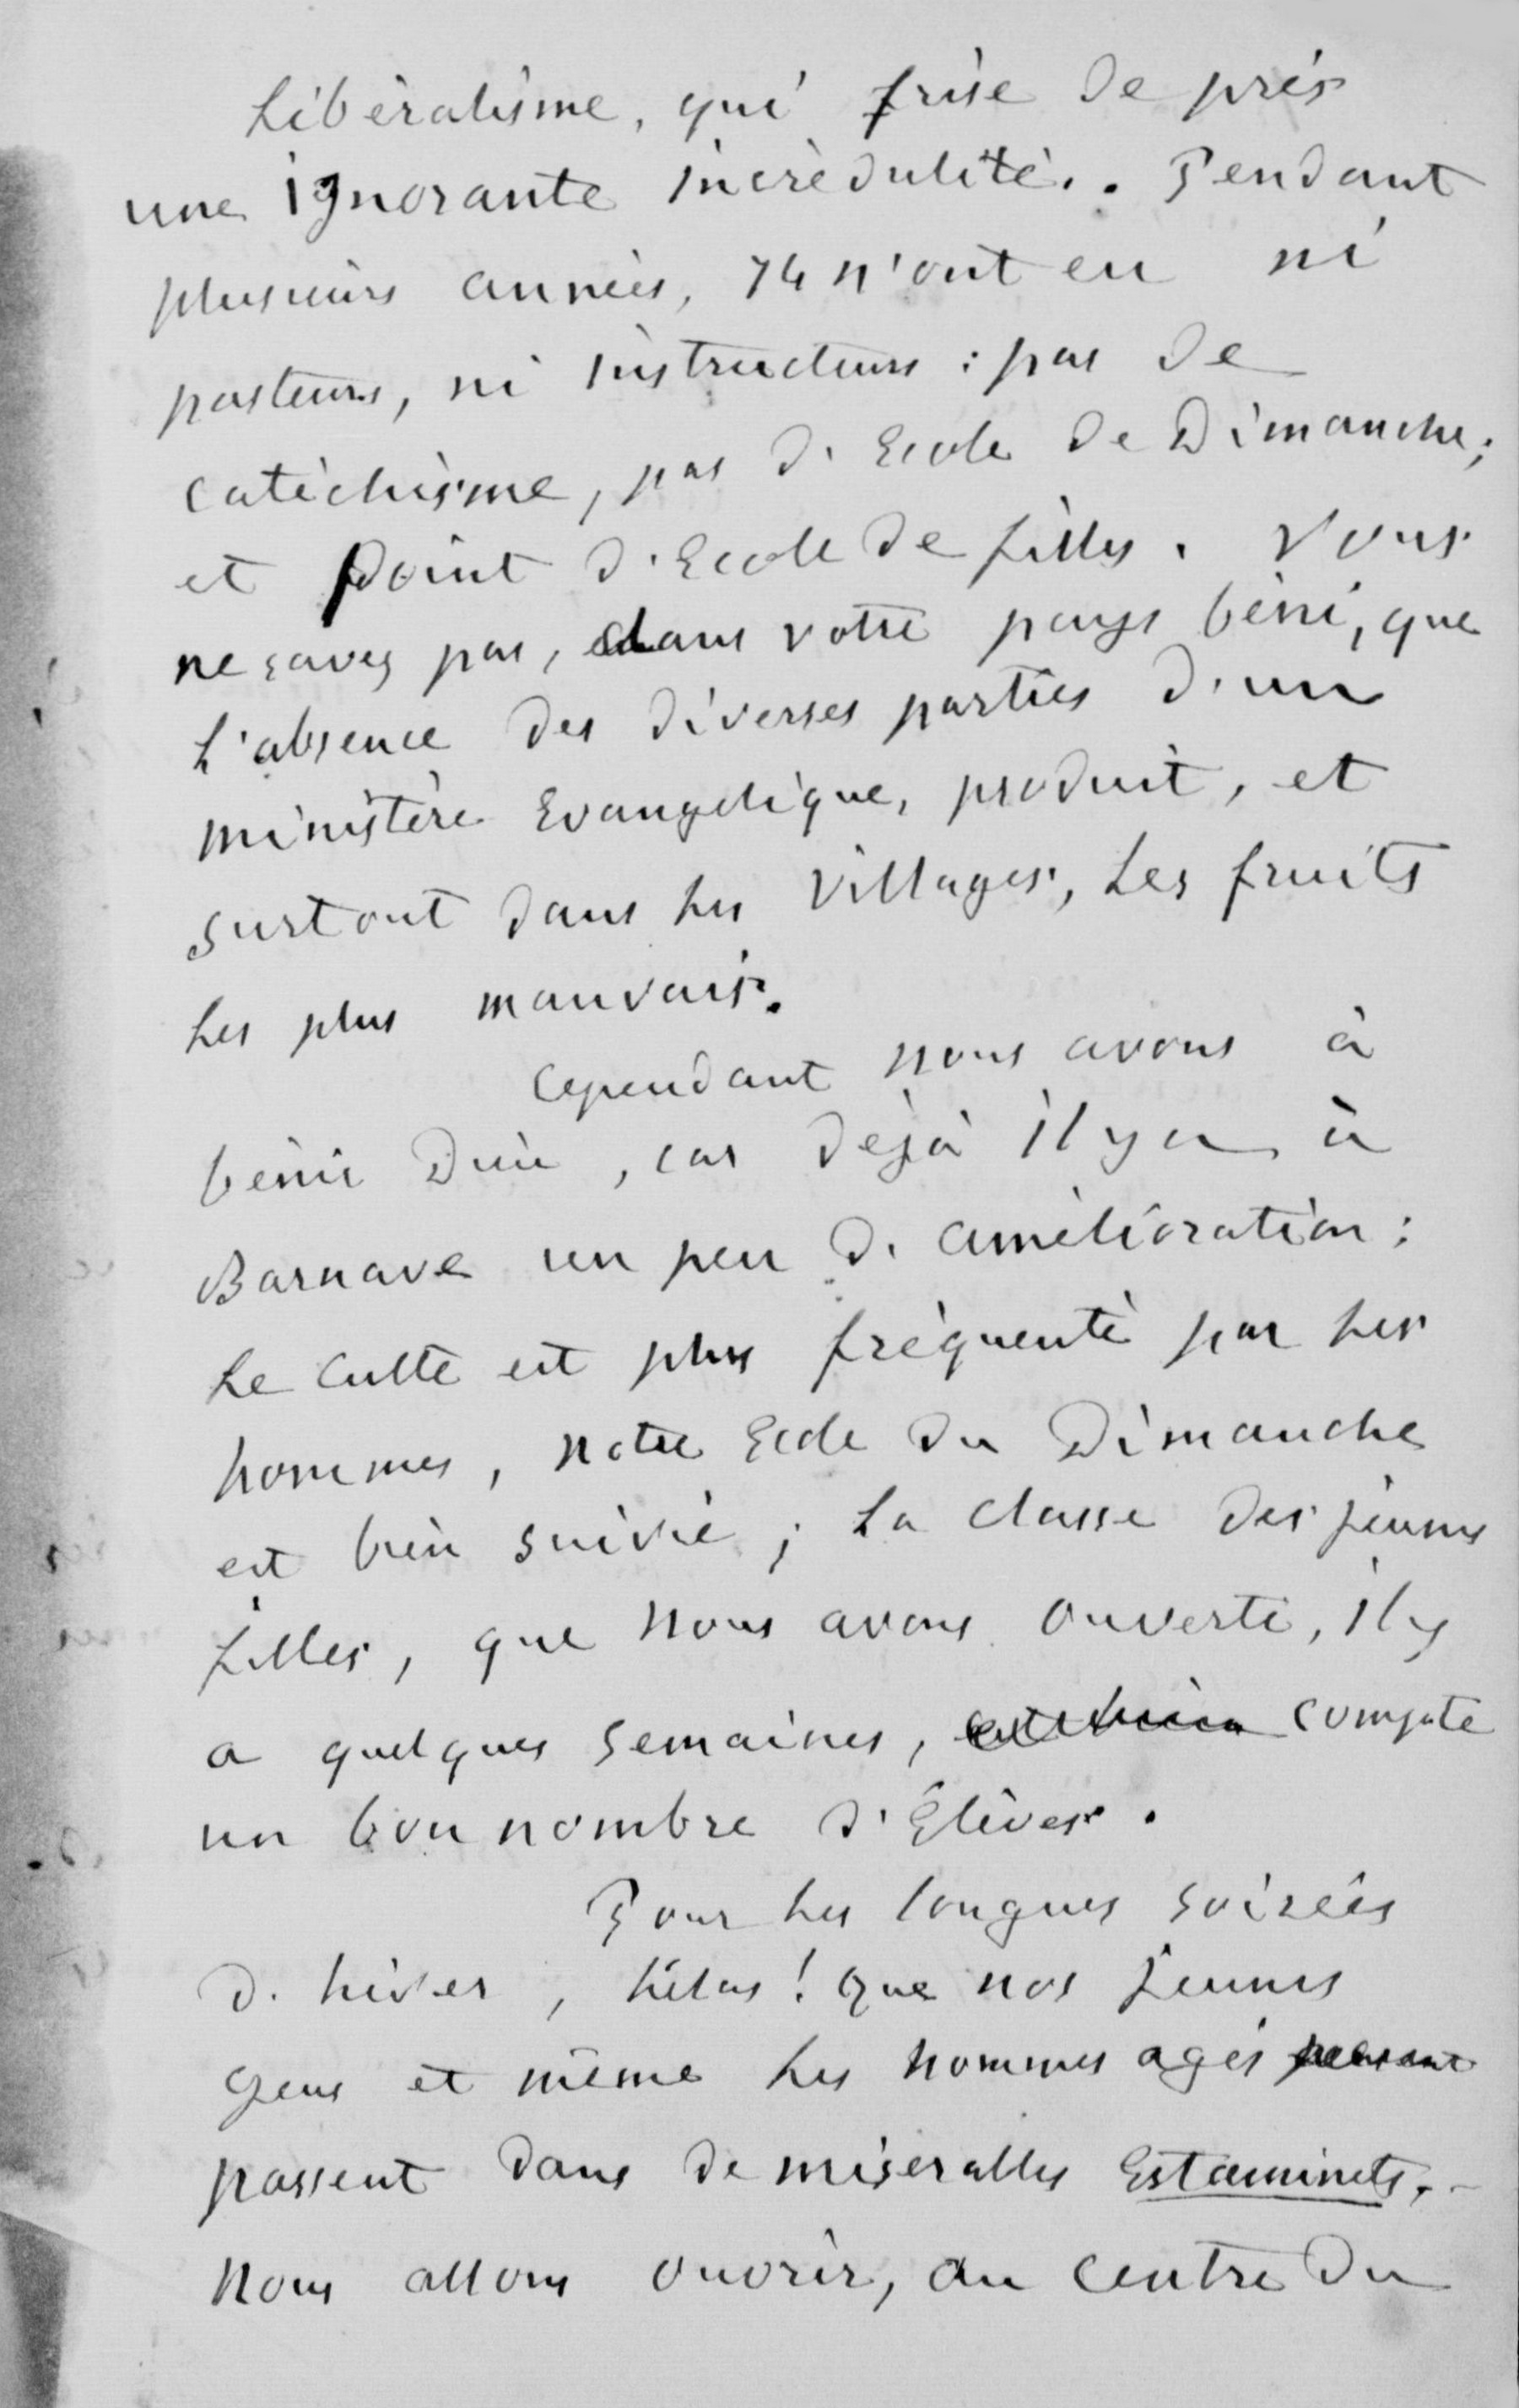 Libéralisme, qui frise de près
une ignorante incrédulité. Pendant
plusieurs années, Ils n'ont eu ni
pasteurs, ni instructeurs : pas de
catéchisme, pas d'Ecole de Dimanche ;
et point d'Ecole de filles. Vous
ne savez pas, dans votre pays béni, que
l'absence des diverses parties d'un
ministère Evangélique, produit, et
surtout dans les villages, les fruits
les plus mauvais.
Cependant nous avons à
bénir Dieu, car déjà il y a à
Barnave un peu d'amélioration :
Le culte est plus fréquenté par les
hommes, notre Ecole du Dimanche
est bien suivie ; la classe des jeunes
filles, que nous avons ouverte, il y
a quelques semaines, est bien compte
un bon nombre d'Élèves.
Pour les longues soirées
d'hiver, hélas ! que nos jeunes
gens et même les hommes agés
passent dans de miserables Estaminets. -
Nous allons ouvrir, au centre du